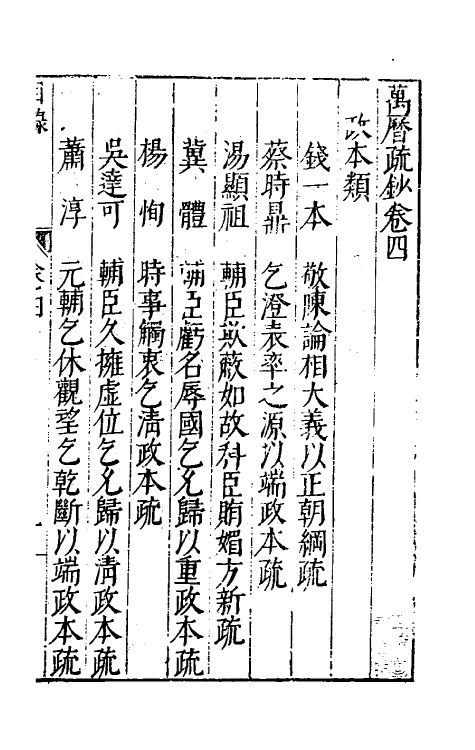 萬曆疏鈔卷四
政本類
錢一本 敬陳論相大義以正朝綱疏
蔡時鼎 乞澄表率之源以端政本疏
湯顯祖 輔臣欺蔽如故科臣賄媚方新疏
冀體 輔臣虧名辱國乞允歸以重政本疏
楊恂 時事觸衷乞清政本疏
吳達可 輔臣久擁虛位乞允歸以清政本疏
蕭淳 元輔乞休觀望乞乾斷以端政本疏
目錄 卷四 一